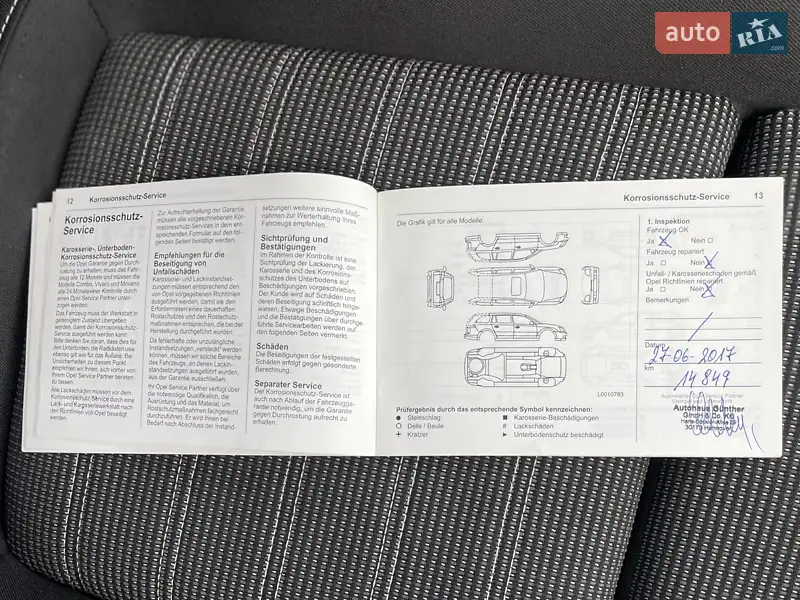 auto RIA .com
12 Korrosionsschutz-Service
Korrosionsschutz-
Service
Karosserie-, Unterboden-
Korrosionsschutz-Service
Um die Opel Garantie gegen Durch-
rostung zu erhalten, muss das Fahr-
zeug alle 12 Monate und müssen die
Modelle Combo, Vivaro und Movano
alle 24 Monate einer Kontrolle durch
einen Opel Service Partner unter-
zogen werden.
Das Fahrzeug muss der Werkstatt in
gereinigtem Zustand übergeben
werden, damit der Korrosionsschutz-
Service ausgeführt werden kann.
Bitte denken Sie daran, dass dies für
den Unterboden, die Radkästen usw.
ebenso gilt wie für das Äußere. Bei
Unsicherheiten zu diesem Punkt
empfehlen wir Ihnen, sich vorher von
Ihrem Opel Service Partner beraten
zu lassen.
Alle Lackschäden müssen vor dem
Korrosionsschutz-Service durch eine
Lack- und Karosseriewerkstatt nach
den Richtlinien von Opel beseitigt
werden.
Zur Aufrechterhaltung der Garantie
müssen alle vorgeschriebenen Kor-
rosionsschutz-Services in dem ent-
sprechenden Formular auf den fol-
genden Seiten bestätigt werden.
Empfehlungen für die
Beseitigung von
Unfallschäden
Karosserie- und Lackinstandset-
zungen müssen entsprechend den
von Opel vorgegebenen Richtlinien
ausgeführt werden, damit sie den
Erfordernissen eines dauerhaften
Rostschutzes und den Rostschutz-
maßnahmen entsprechen, die bei der
Herstellung durchgeführt wurden.
Da fehlerhafte oder unzulängliche
Instandsetzungen „versteckt" werden
können, müssen wir solche Bereiche
des Fahrzeugs, an denen Lackin-
standsetzungen ausgeführt wurden,
aus der Garantie ausschließen.
Ihr Opel Service Partner verfügt über
die notwendige Qualifikation, die
Ausrüstung und das Material, um
Rostschutzmaßnahmen fachgerecht
durchzuführen. Er wird Ihnen bei
Bedarf nach Abschluss der Instand-
setzungen weitere sinnvolle Maß-
nahmen zur Werterhaltung Ihres
Fahrzeugs empfehlen.
Sichtprüfung und
Bestätigungen
Im Rahmen der Kontrolle ist eine
Sichtprüfung der Lackierung, der
Karosserie und des Korrosions-
schutzes des Unterbodens auf
Beschädigungen vorgeschrieben.
Der Kunde wird auf Schäden und
deren Beseitigung schriftlich hinge-
wiesen. Etwaige Beschädigungen
und die Bestätigungen über durchge-
führte Servicearbeiten werden auf
den folgenden Seiten vermerkt.
Schäden
Die Beseitigung der festgestellten
Schäden erfolgt gegen gesonderte
Berechnung.
Separater Service
Der Korrosionsschutz-Service ist
auch nach Ablauf der Fahrzeugga-
rantie notwendig, um die Garantie
gegen Durchrostung aufrecht zu
erhalten.
Korrosionsschutz-Service 13
Die Grafik gilt für alle Modelle.
L0010783
Prüfergebnis durch das entsprechende Symbol kennzeichnen:
Steinschlag
Delle / Beule
+ Kratzer
Karosserie-Beschädigungen
# Lackschäden
Unterbodenschutz beschädigt
1. Inspektion
Fahrzeug OK
Ja Nein
Fahrzeug repariert
Ja Nein
Unfall- / Karosserieschaden gemäß
Opel Richtlinien repariert
Ja Nein
Bemerkungen
Datum
27-06-2017
km
14849
Autohaus Günther
GmbH & Co. KG
30179 Hannover